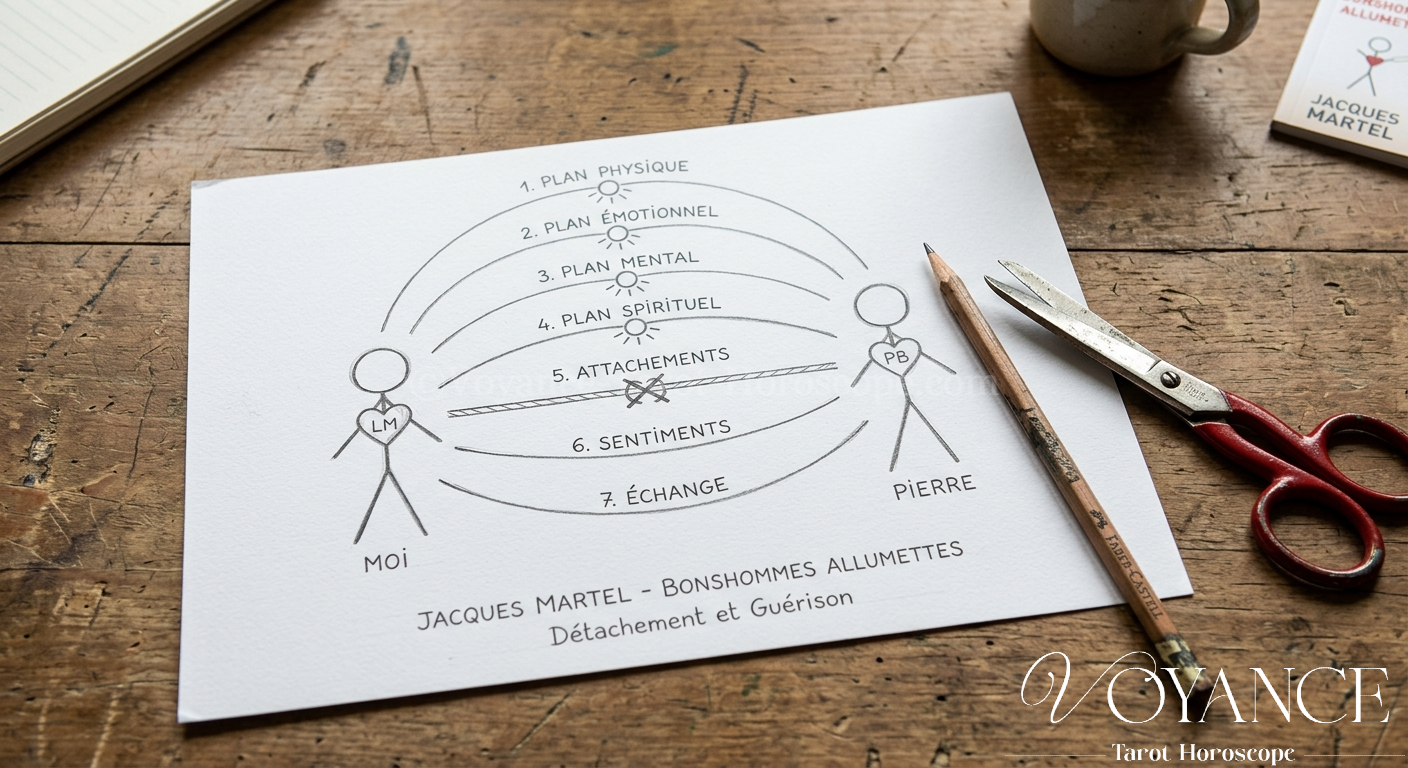 1. PLAN PHYSIQUE
2. PLAN ÉMOTIONNEL
3. PLAN MENTAL
4. PLAN SPIRITUEL
5. ATTACHEMENTS
6. SENTIMENTS
7. ÉCHANGE
LM
MOI
PB
PIERRE
JACQUES MARTEL - BONSHOMMES ALLUMETTES
Détachement et Guérison
FABER-CASTELL
ALLUMETTES
JACQUES
MARTEL
VOYANCE
Tarot Horoscope